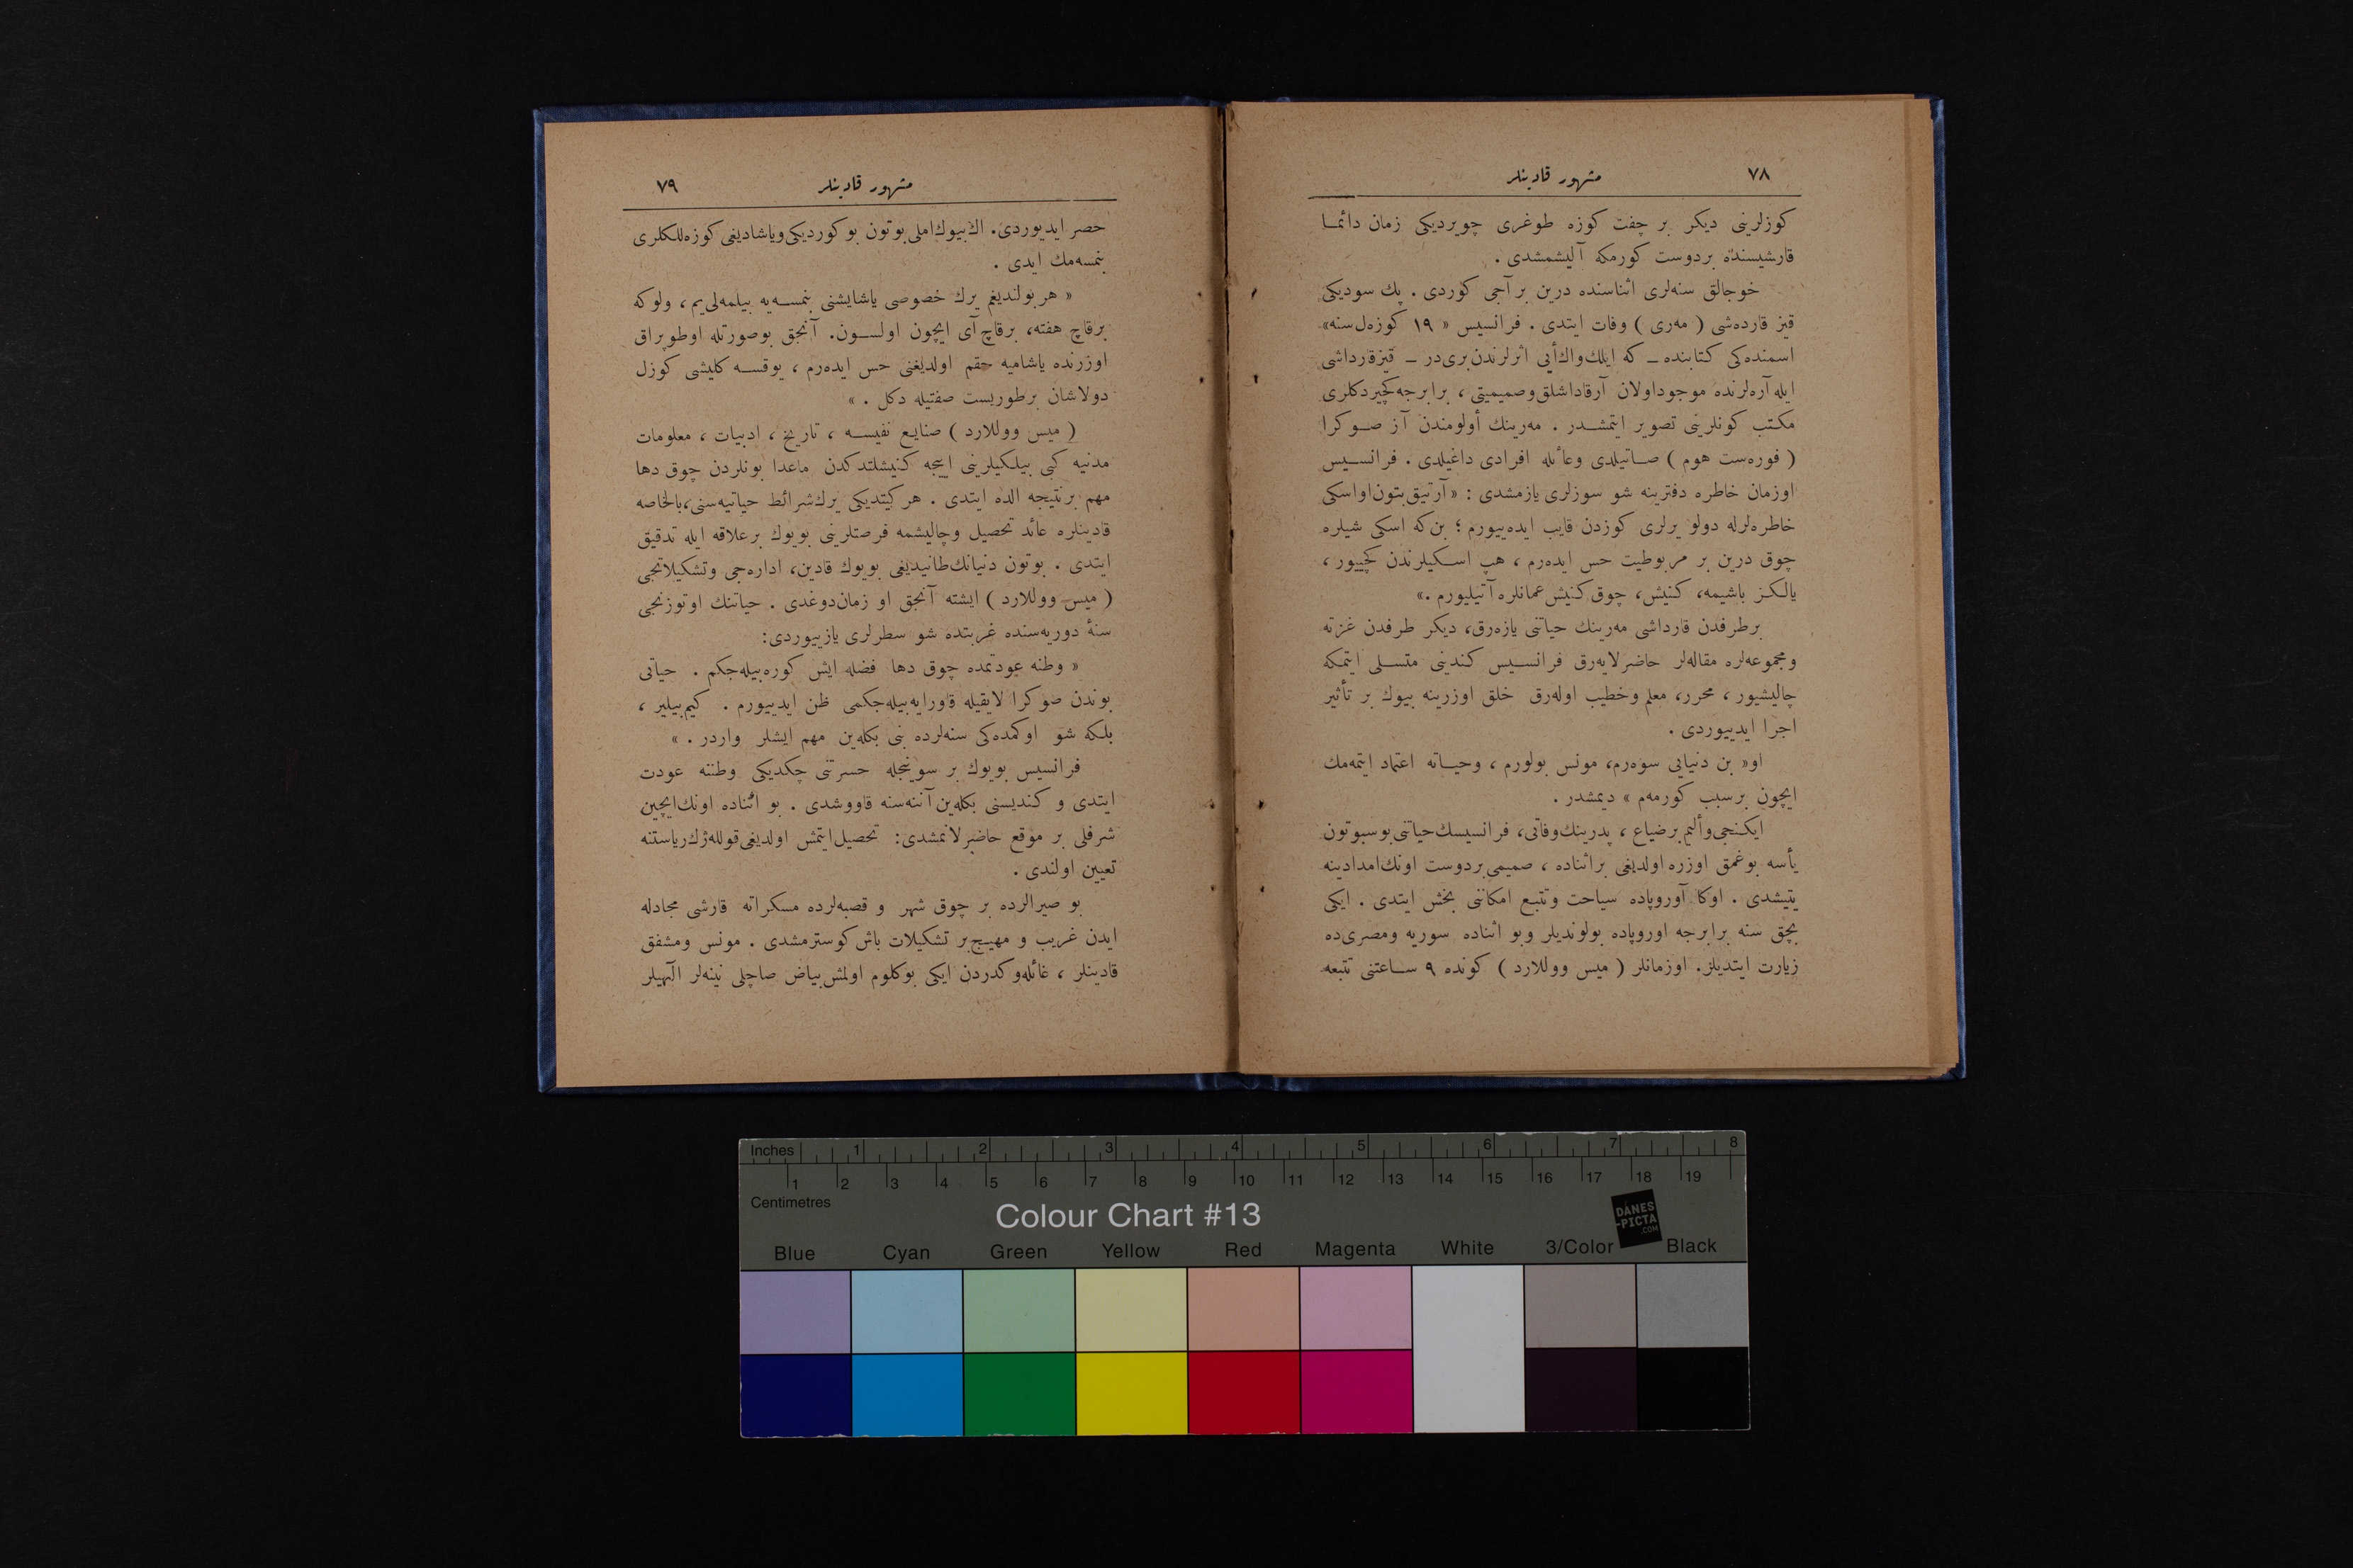 ٧٨
مشهور قادينلر
كوزلرينى ديكر بر چفت كوزه طوغرى چويرديكى زمان دائمـا
قارشيسنده بردوست كورمكه آليشمشدى .
خوجالق سنه‌لرى اثناسنده درين بر آجى كوردى . پك سوديكى
قيز قارده‌شى ( مه‌رى ) وفات ايتدى . فرانسيس « ١٩ كوزه‌ل سنه»
اسمنده‌كى كتابنده ـ كه ايلك واك أيى اثرلرندن برى‌در ـ قيزقارداشى
ايله آره‌لرنده موجوداولان آرقاداشلق وصميميتى ، برابرجه كچيردكلرى
مكتب كونلرينى تصوير ايتمشـدر . مه‌رينك أولومندن آز صـوكرا
( فوره‌ست هوم ) صـاتيلدى وعائله افرادى داغيلدى . فرانسـيس
اوزمان خاطره دفترينه شو سوزلرى يازمشدى : « آرتيق بتون او اسكى
خاطره‌لرله دولو يرلرى كوزدن قايب ايده‌ييورم ؛ بن كه اسكى شيلره
چوق درين بر مربوطيت حس ايده‌رم ، هپ اسـكيلرندن كچييور ،
يالكـز باشيمه، كنيش، چوق كنيش عمانلره آتيليورم .»
برطرفدن قارداشى مه‌رينك حياتنى يازه‌رق، ديكر طرفدن غزته
ومجموعه‌لره مقاله‌لر حاضرلايه‌رق فرانسـيس كندينى متسـلى ايتمكه
چاليشيور ، محرر، معلم وخطيب اوله‌رق خلق اوزرينه بيوك بر تأثير
اجرا ايدييوردى .
او « بن دنيايى سوه‌رم، مونس بولورم ، وحيـاته اعتماد ايتمه‌مك
ايچون برسبب كورمه‌م » ديمشدر .
ايكنجى وأليم برضياع ، پدرينك وفاتى، فرانسيسك حياتنى بوسبوتون
يأسه بوغمق اوزره اولديغى براثناده ، صميمى بردوست اونك امدادينه
يتيشدى . اوكا آوروپاده سياحت وتتبع امكاننى بخش ايتدى . ايكى
بچق سنه برابرجه اوروپاده بولونديلر وبو اثناده سوريه ومصرى‌ده
زيارت ايتديلر. اوزمانلر ( ميس ووللارد ) كونده ٩ سـاعتنى تتبعه
مشهور قادينلر
٧٩
حصر ايديوردى. اك بيوك املى بوتون بو كورديكى وياشاديغى كوزه‌للكلرى
بنمسه‌مك ايدى .
« هر بولنديغم يرك خصوصى ياشايشنى بنمسـه‌يه بيلمه‌لى‌يم ، ولوكه
برقاچ هفته، برقاچ آى ايچون اولسـون. آنجق بوصورتله اوطوپراق
اوزرنده ياشاميه حقم اولديغنى حس ايده‌رم ، يوقسـه كليشى كوزل
دولاشان برطوريست صفتيله دكل . »
( ميس ووللارد ) صنايع نفيسـه ، تاريخ ، ادبيات ، معلومات
مدنيه كبى بيلكيلرينى اييجه كنيشلتدكدن ماعدا بونلردن چوق دها
مهم برنتيجه الده ايتدى . هر كيتديكى يرك شرائط حياتيه‌سنى، بالخاصه
قادينلره عائد تحصيل وچاليشمه فرصتلرينى بويوك برعلاقه ايله تدقيق
ايتدى . بوتون دنيانك طانيديغى بويوك قادين، اداره‌جى وتشكيلاتجى
( ميس ووللارد ) ايشته آنجق او زمان دوغدى . حياتنك اوتوزنجى
سنۀ دوريه‌سنده غربتده شو سطرلرى يازييوردى:
« وطنه عودتمده چوق دها فضله ايش كوره‌بيله‌جكم . حياتى
بوندن صوكرا لايقيله قاورايه‌بيله‌جكمى ظن ايدييورم . كيم بيلير ،
بلكه شو اوكمده‌كى سنه‌لرده بنى بكله‌ين مهم ايشلر واردر . »
فرانسيس بويوك بر سوينجله حسرتنى چكديكى وطننه عودت
ايتدى و كنديسنى بكله‌ين آننه‌سنه قاووشدى . بو اثناده اونك ايچين
شرفلى بر موقع حاضرلانمشدى: تحصيل ايتمش اولديغى قولله‌ژك رياستنه
تعيين اولندى .
بو صيرالرده بر چوق شهر و قصبه‌لرده مسكراته قارشى مجادله
ايدن غريب و مهيج بر تشكيلات باش كوسترمشدى . مونس ومشفق
قادينلر ، غائله‌و كدردن ايكى بوكلوم اولمش بياض صاچلى نينه‌لر الٓهيلر
Inches 1 2 3 4 5 6 7 8
1 2 3 4 5 6 7 8 9 10 11 12 13 14 15 16 17 18 19
Centimetres
Colour Chart #13
DANES
-PICTA
.COM
Blue Cyan Green Yellow Red Magenta White 3/Color Black